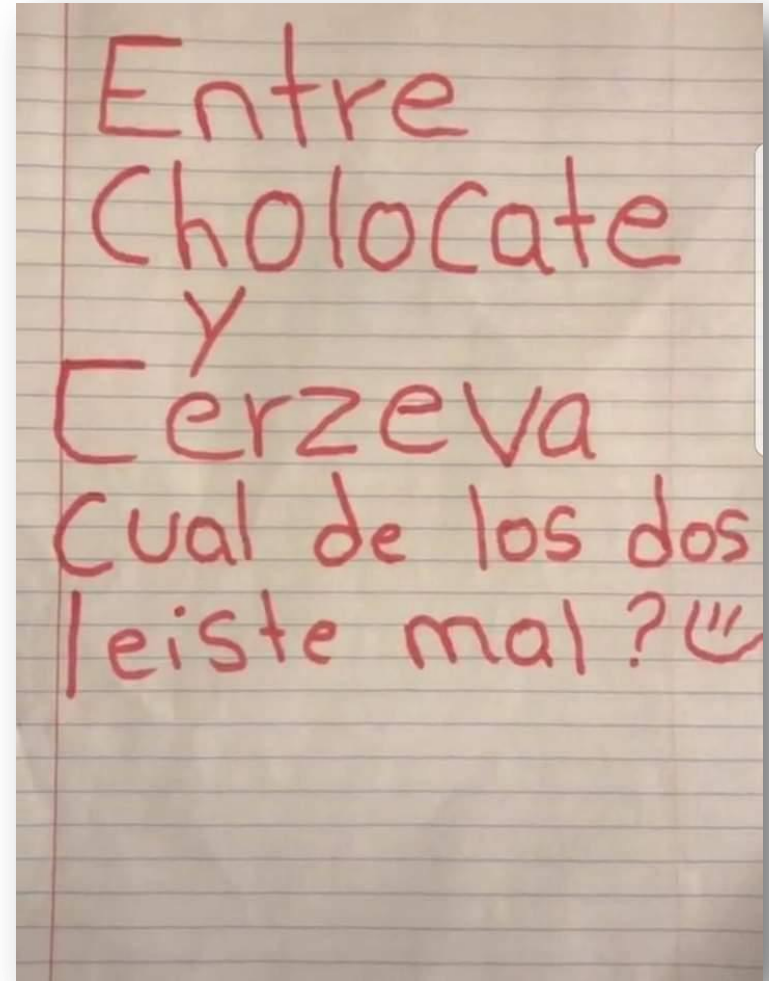 Entre
Cholocate
y
Cerzeva
Cual de los dos
leiste mal ?